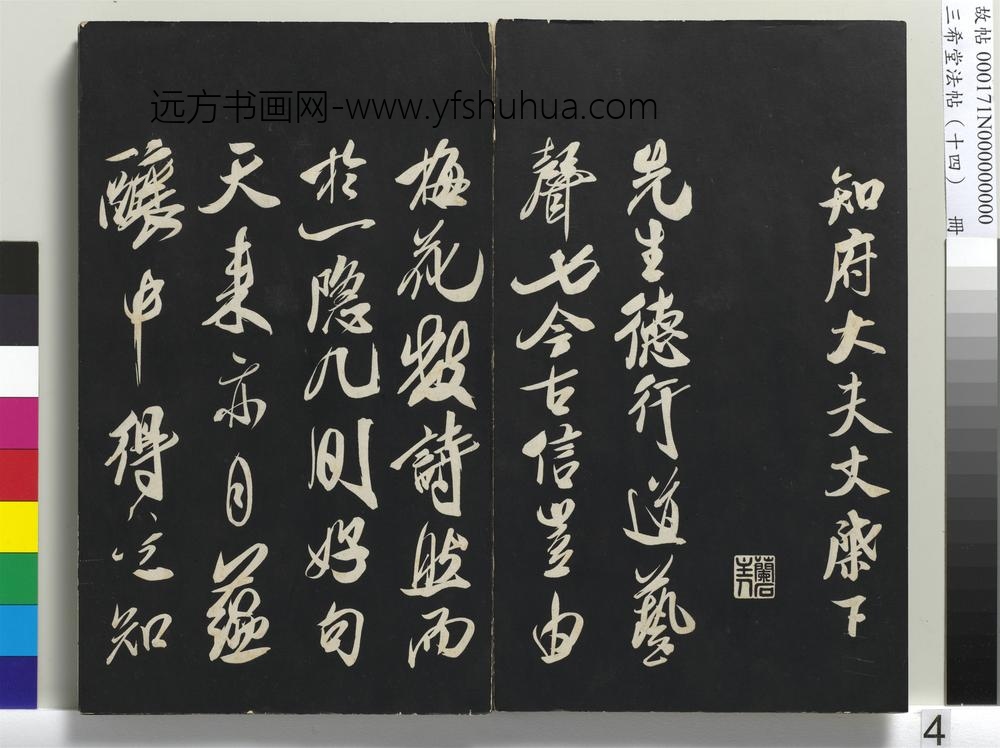 知府大夫丈棨下
先生德行道藝
聲七今古信豈由
梅花數詩然而
於一隐几間好句
天來亦自蕴
釀中得人之知
远方书画网-www.yfshuhua.com
故帖 000171N000000000
三希堂法帖（十四） 冊
4